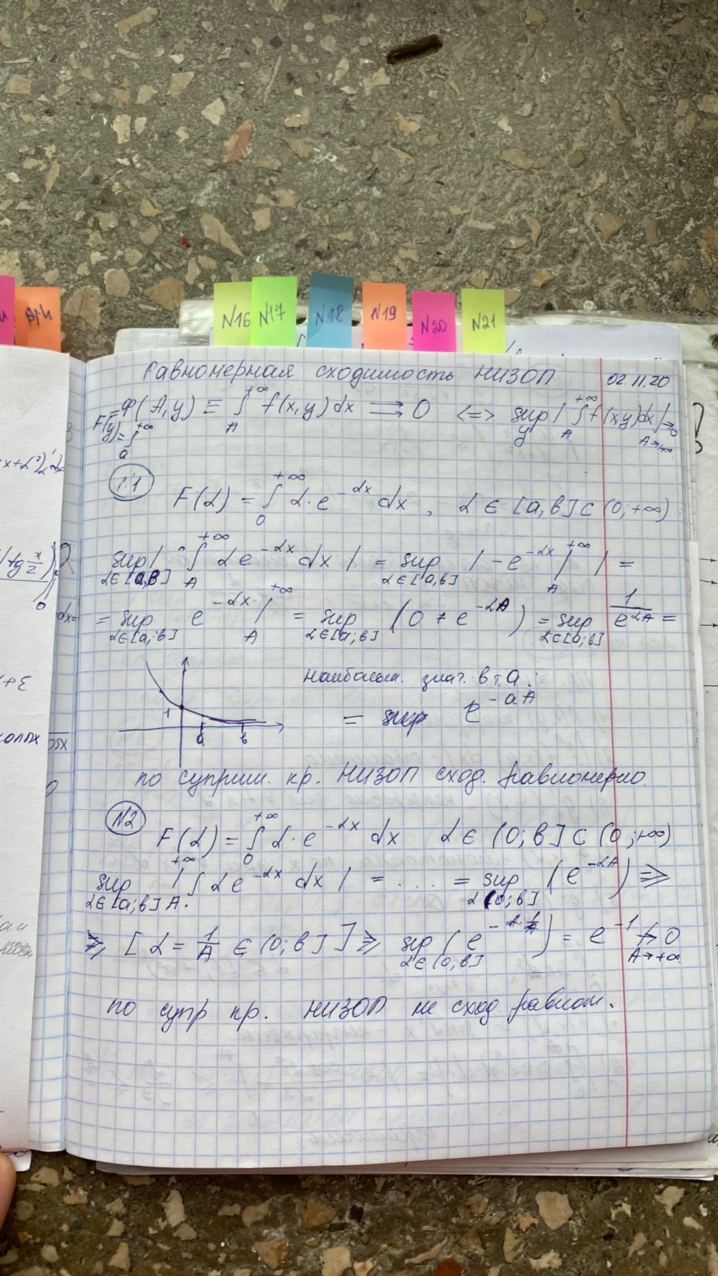 N16 N17 N18 N19 N20 N21
Равномерная сходимость НИЗОП 02.11.20
F(y) = ∫_a^{+∞} Φ(A,y) ≡ ∫_A^{+∞} f(x,y) dx ⇉ 0 <=> sup_y | ∫_A^{+∞} f(x,y) dx | → 0 A→+∞
N1 F(α) = ∫_0^{+∞} α·e^{-αx} dx, α ∈ [a,b] ⊂ (0,+∞)
sup_{α∈[a,b]} | ∫_A^{+∞} αe^{-αx} dx | = sup_{α∈[a,b]} | -e^{-αx} |_A^{+∞} | =
= sup_{α∈[a;b]} e^{-αx} |_A^{+∞} = sup_{α∈[a;b]} (0 + e^{-αA}) = sup_{α∈[a;b]} 1/e^{αA} =
наибольш. знач. в т. a:
1 a b
= sup e^{-aA}
по суприм. пр. НИЗОП сход. равномерно
N2 F(α) = ∫_0^{+∞} α·e^{-αx} dx α ∈ (0;b] ⊂ (0;+∞)
sup_{α∈[a;b]} | ∫_A^{+∞} αe^{-αx} dx | = .... = sup_{α(0;b]} (e^{-αA}) ⩾
⩾ [α = 1/A ∈ (0;b]] ⩾ sup_{α∈(0,b]} (e^{-A·1/A}) = e^{-1} ↛ 0 A→+∞
по супр пр. НИЗОП не сход равном.